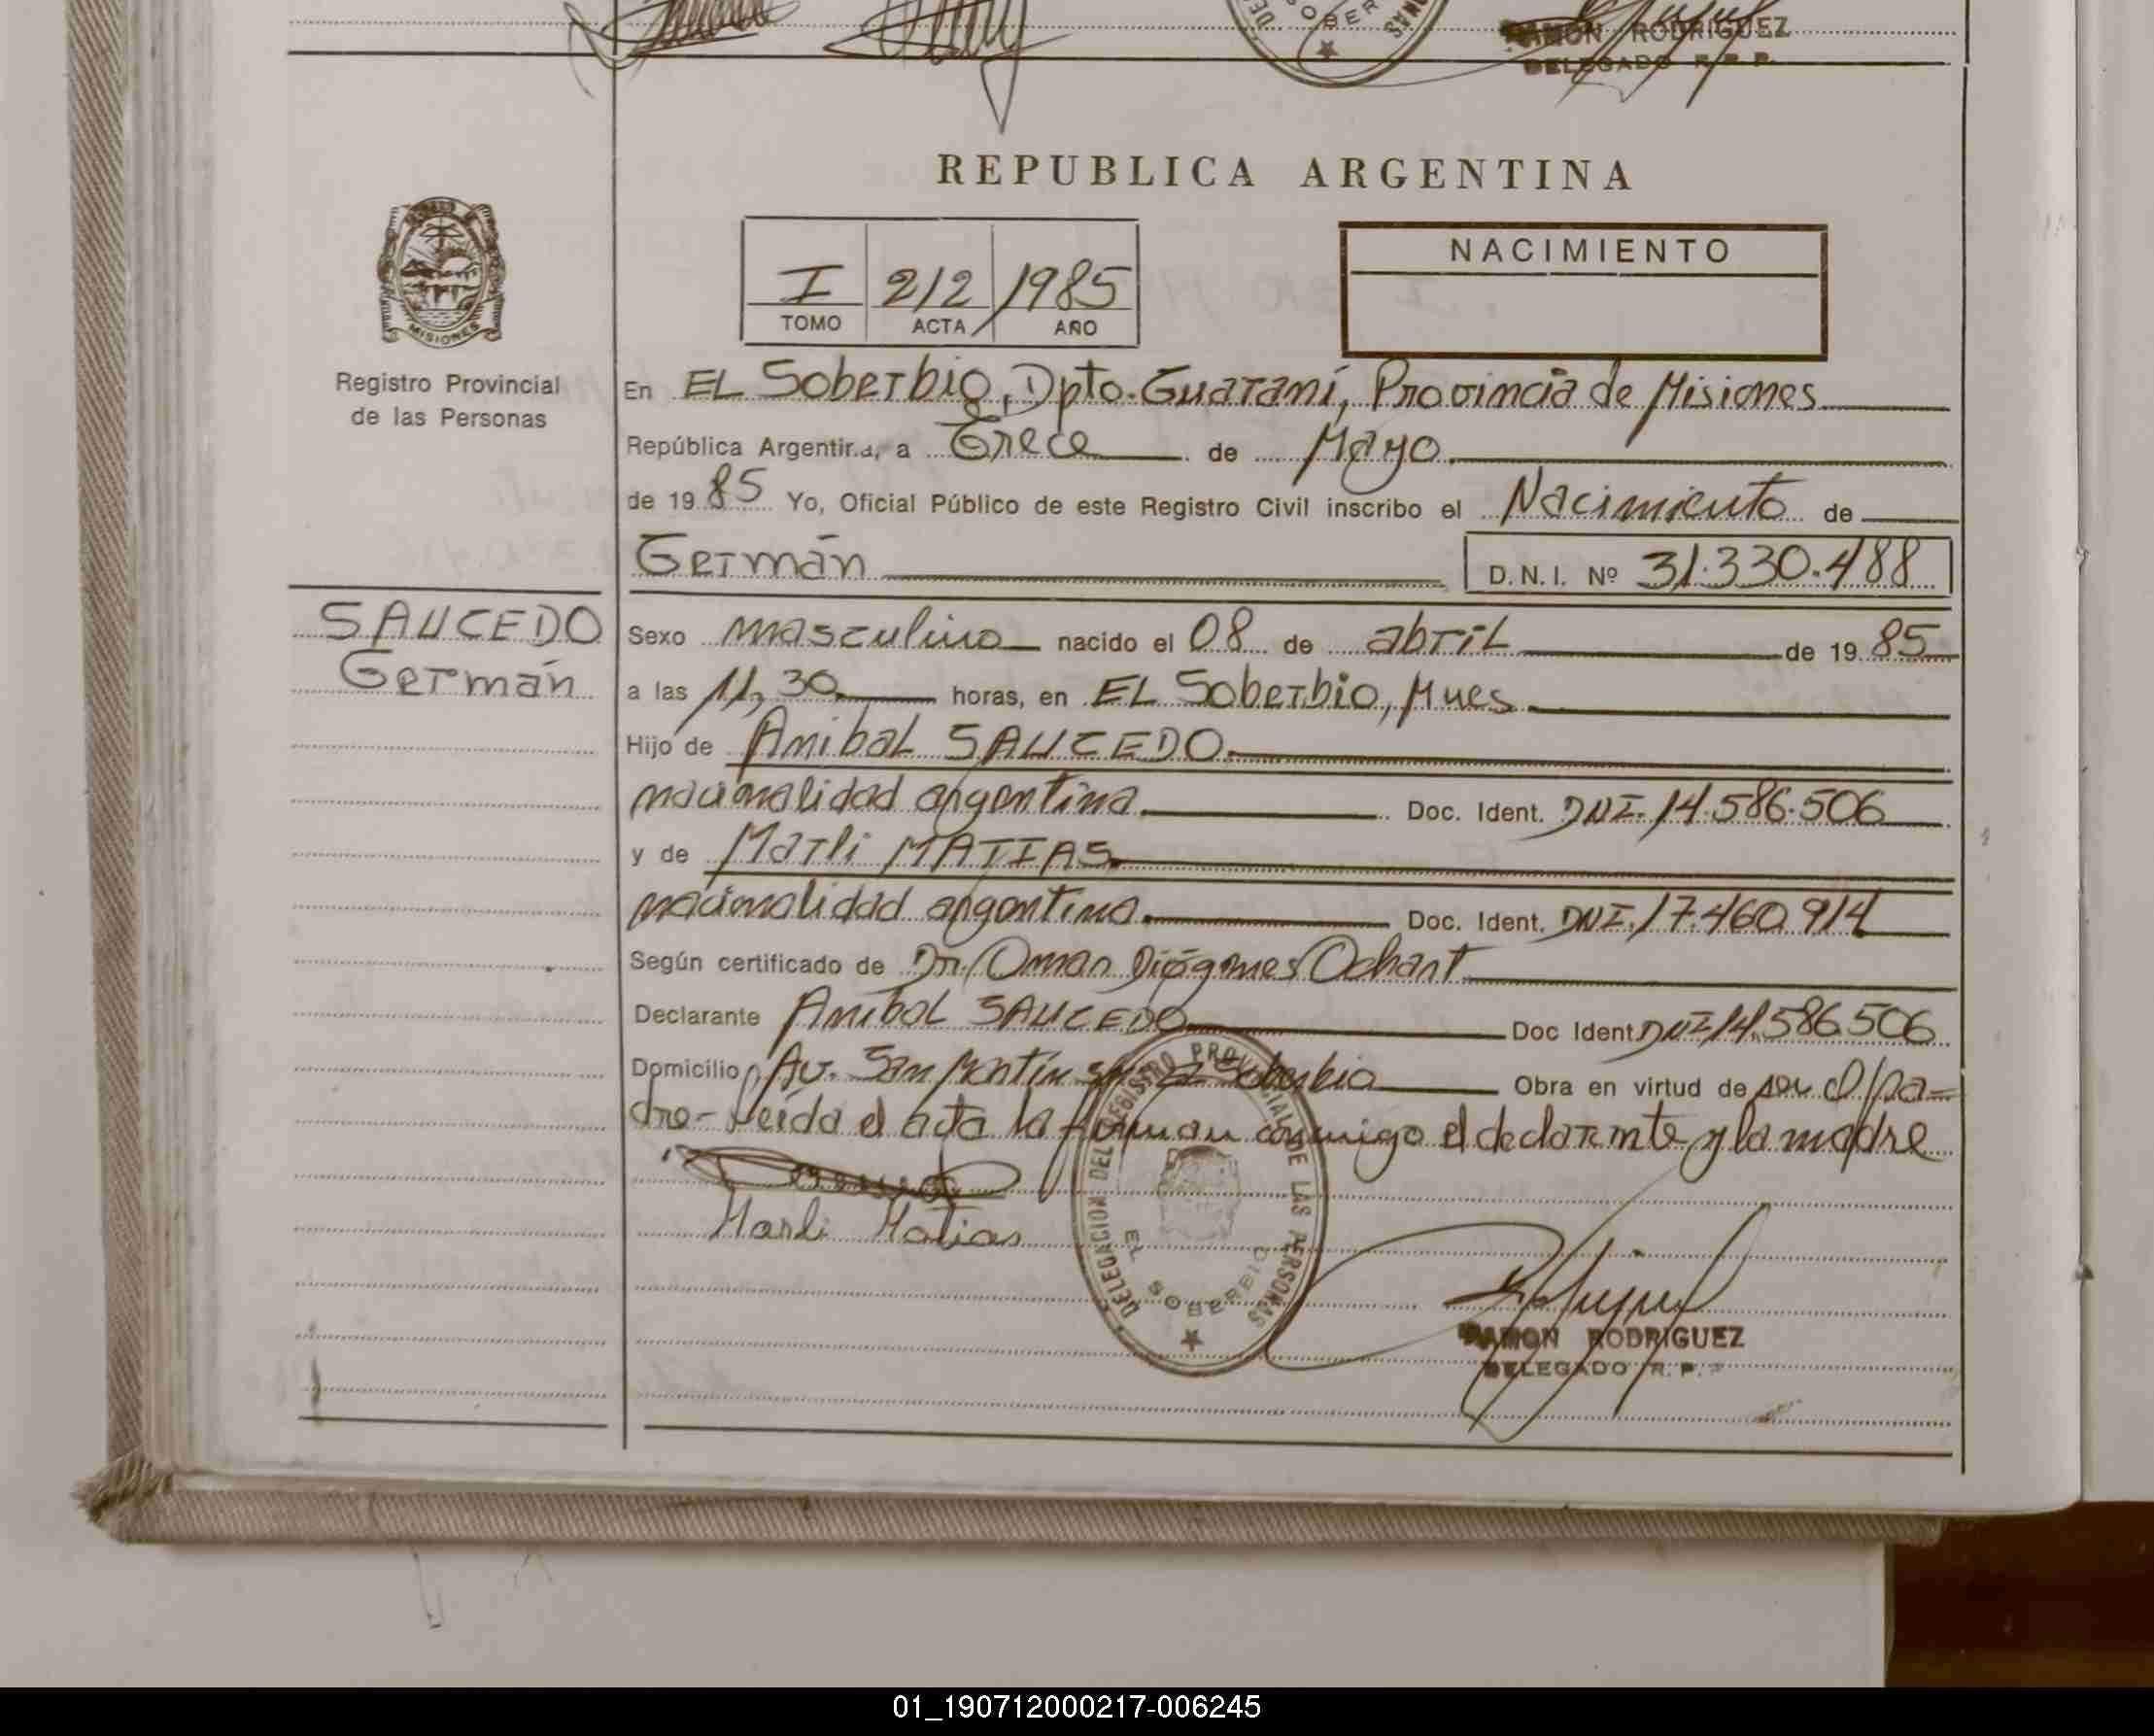 SOBER
RAMON RODRIGUEZ
DELEGADO R. P. P.
REPUBLICA ARGENTINA
MISIONES
Registro Provincial
de las Personas
I 212 1985
TOMO ACTA AÑO
NACIMIENTO
En EL Soberbio, Dpto. Guaraní, Provincia de Misiones
República Argentina, a Trece de Mayo
de 19 85 Yo, Oficial Público de este Registro Civil inscribo el Nacimiento de
Germán D.N.I. Nº 31.330.488
SAUCEDO
Germán
Sexo masculino nacido el 08 de abril de 19 85
a las 11,30 horas, en EL Soberbio, Mnes
Hijo de Anibal SAUCEDO
nacionalidad argentina Doc. Ident. DNI. 14.586.506
y de Marli MATIAS
nacionalidad argentina Doc. Ident. DNI. 17.460.914
Según certificado de Dr. Omar Diógenes Ochant
Declarante Anibal SAUCEDO Doc Ident DNI 14.586.506
Domicilio Av. San Martín s/n El Soberbio Obra en virtud de ser el pa=
dre- Leída el acta la firman conmigo el declarante y la madre
Marli Matias
DELEGACION DEL REGISTRO PROVINCIAL DE LAS PERSONAS
EL SOBERBIO
RAMON RODRIGUEZ
DELEGADO R. P. P.
01_190712000217-006245